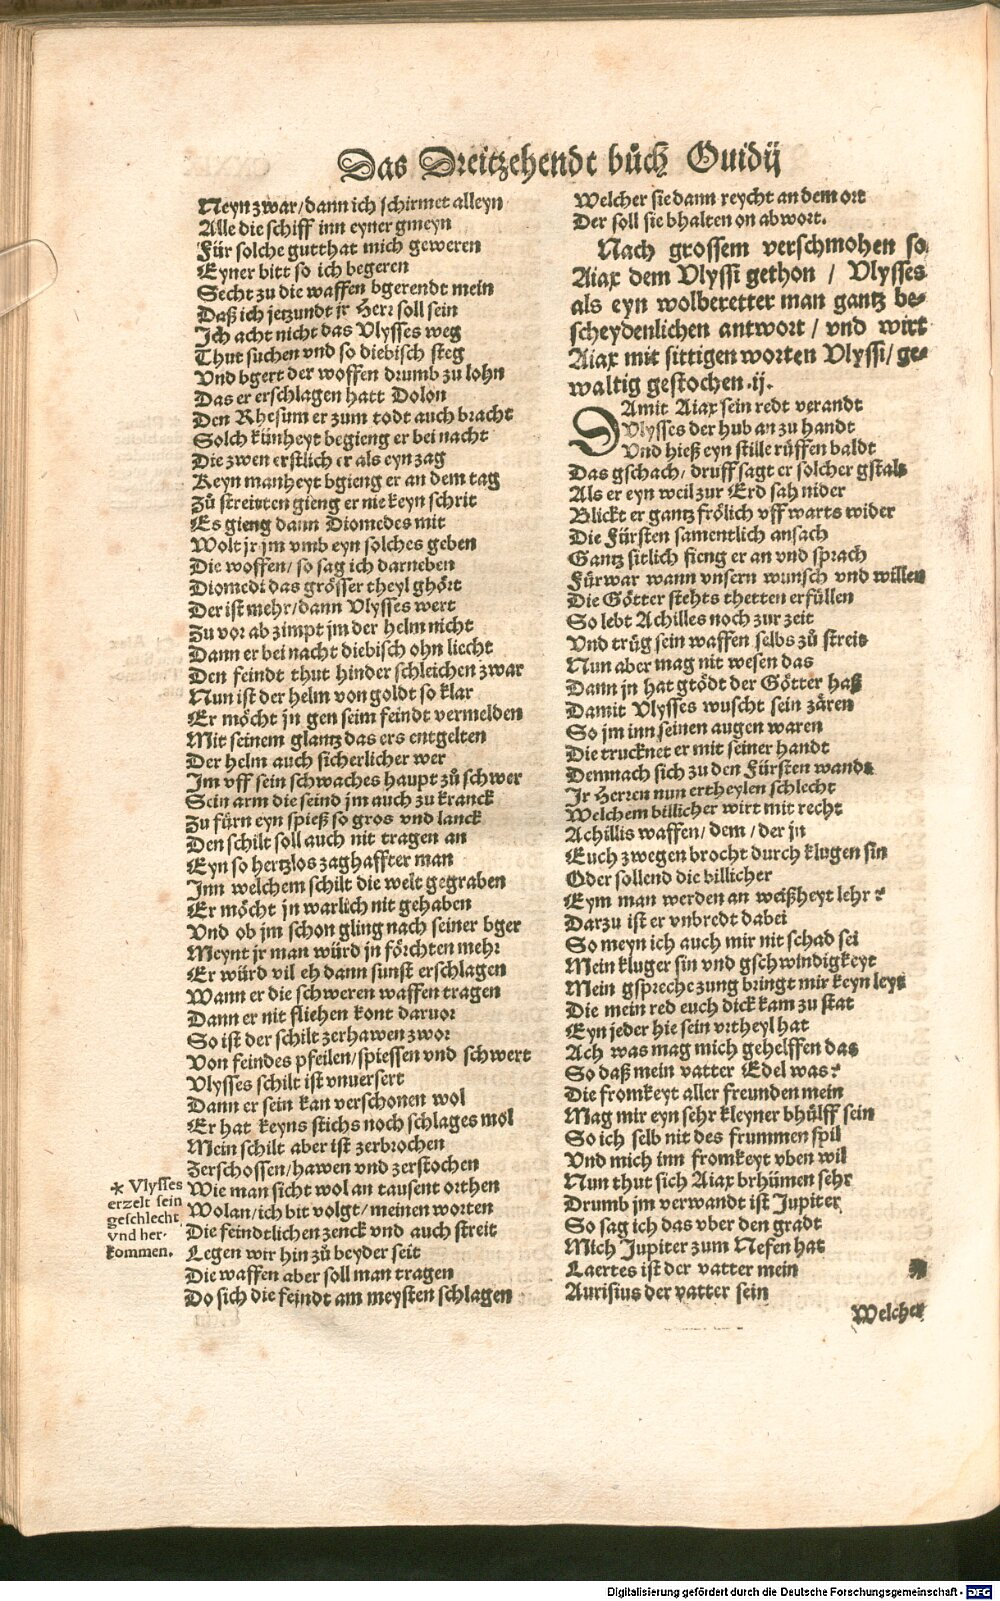 Das Dreitzehendt bůch Ouidij
Neyn zwar/ dann ich schirmet alleyn
Alle die schiff inn eyner gmeyn
Für solche gutthat mich geweren
Eyner bitt so ich begeren
Secht zu die waffen bgerendt mein
Daß ich jetzundt jr Herr soll sein
Ich acht nicht das Vlysses weg
Thut suchen vnd so diebisch steg
Vnd bgert der woffen drumb zu lohn
Das er erschlagen hatt Dolon
Den Rhesum er zum todt auch bracht
Solch künheyt begieng er bei nacht
Die zwen erstlich er als eyn zag
Keyn manheyt bgieng er an dem tag
Zů streitten gieng er nie keyn schrit
Es gieng dann Diomedes mit
Wolt jr jm vmb eyn solches geben
Die woffen/ so sag ich darneben
Diomedi das grösser theyl ghört
Der ist mehr/ dann Vlysses wert
Zu vor ab zimpt jm der helm nicht
Dann er bei nacht diebisch ohn liecht
Den feindt thut hinder schleichen zwar
Nun ist der helm von goldt so klar
Er möcht jn gen seim feindt vermelden
Mit seinem glantz das ers entgelten
Der helm auch sicherlicher wer
Im vff sein schwaches haupt zů schwer
Sein arm die seind jm auch zu kranck
Zu fürn eyn spieß so gros vnd lanck
Den schilt soll auch nit tragen an
Eyn so hertzlos zaghaffter man
Inn welchem schilt die welt gegraben
Er möcht jn warlich nit gehaben
Vnd ob jm schon gling nach seiner bger
Meynt jr man würd jn förchten mehr
Er würd vil eh dann sunst erschlagen
Wann er die schweren waffen tragen
Dann er nit fliehen kont daruor
So ist der schilt zerhawen zwor
Von feindes pfeilen/ spiessen vnd schwert
Vlysses schilt ist vnuersert
Dann er sein kan verschonen wol
Er hat keyns stichs noch schlages mol
Mein schilt aber ist zerbrochen
Zerschossen/ hawen vnd zerstochen
Wie man sicht wol an tausent orthen
Wolan/ ich bit volgt/ meinen worten
Die feindtlichen zenck vnd auch streit
Legen wir hin zů beyder seit
Die waffen aber soll man tragen
Do sich die feindt am meysten schlagen
* Vlysses
erzelt sein
geschlecht
vnd her-
kommen.
Welcher sie dann reycht an dem ort
Der soll sie bhalten on abwort.
Nach grossem verschmohen so
Aiax dem Vlyssi gethon / Vlysses
als eyn wolberetter man gantz be-
scheydenlichen antwort / vnd wirt
Aiax mit sittigen worten Vlyssi/ ge-
waltig gestochen .ij.
DAmit Aiax sein redt verandt
Vlysses der hub an zu handt
Vnd hieß eyn stille rüffen baldt
Das gschach/ druff sagt er solcher gstalt
Als er eyn weil zur Erd sah nider
Blickt er gantz frölich vff warts wider
Die Fürsten samentlich ansach
Gantz sitlich fieng er an vnd sprach
Fürwar wann vnsern wunsch vnd willen
Die Götter stehts thetten erfüllen
So lebt Achilles noch zur zeit
Vnd trüg sein waffen selbs zů streit
Nun aber mag nit wesen das
Dann jn hat gtödt der Götter haß
Damit Vlysses wuscht sein zären
So jm inn seinen augen waren
Die trucknet er mit seiner handt
Demnach sich zu den Fürsten wandt
Ir Herren nun ertheylen schlecht
Welchem billicher wirt mit recht
Achillis waffen/ dem / der jn
Euch zwegen brocht durch klugen sin
Oder sollend die billicher
Eym man werden an weißheyt lehr?
Darzu ist er vnbredt dabei
So meyn ich auch mir nit schad sei
Mein kluger sin vnd gschwindigkeyt
Mein gspreche zung bringt mir keyn leyt
Die mein red euch dick kam zu stat
Eyn jeder hie sein vrtheyl hat
Ach was mag mich gehelffen das
So daß mein vatter Edel was?
Die fromkeyt aller freunden mein
Mag mir eyn sehr kleyner bhülff sein
So ich selb nit des frummen spil
Vnd mich inn fromkeyt vben wil
Nun thut sich Aiax brhümen sehr
Drumb jm verwandt ist Jupiter
So sag ich das vber den gradt
Mich Jupiter zum Nefen hat
Laertes ist der vatter mein
Aurisius der vatter sein
Welcher
Digitalisierung gefördert durch die Deutsche Forschungsgemeinschaft - DFG